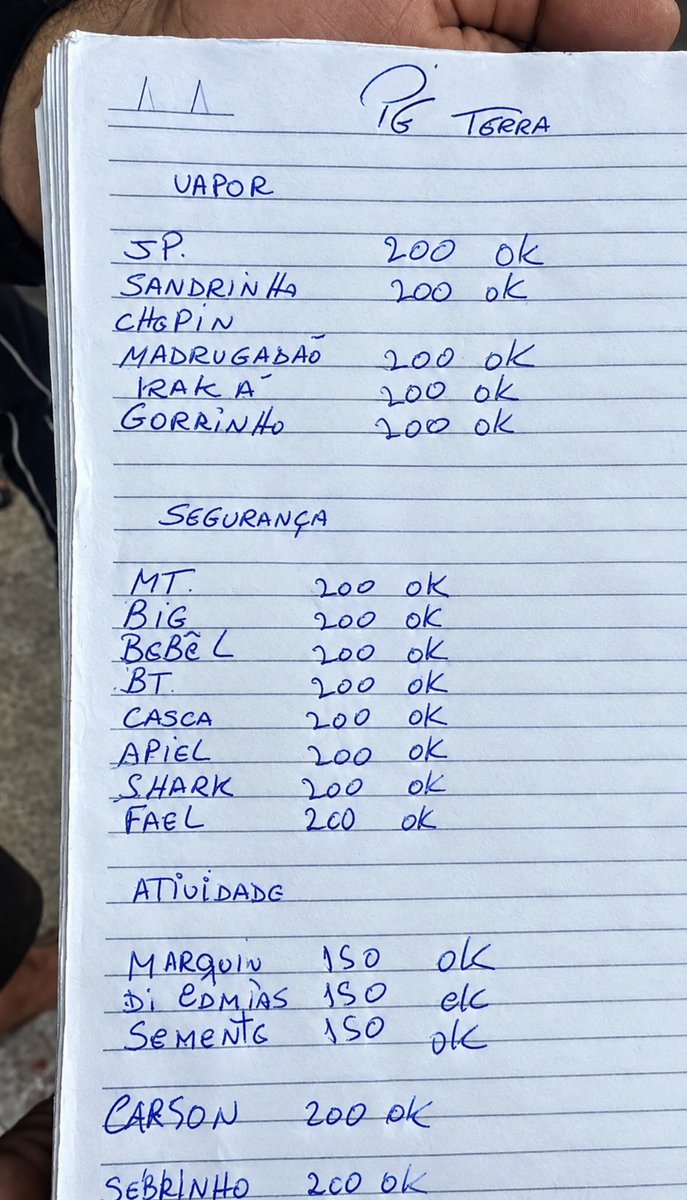 PIG TERRA
VAPOR
JP. 200 OK
SANDRINHA 200 OK
CHGPIN
MADRUGADÃO 200 OK
IRAKÁ 200 OK
GORRINHO 200 OK
SEGURANÇA
MT. 200 OK
BIG 200 OK
BGBÊL 200 OK
BT. 200 OK
CASCA 200 OK
APIEL 200 OK
SHARK 200 OK
FAEL 200 OK
ATIVIDADE
MARQUIN 150 OK
DI 150 OK
SEMENTG 150 OK
CARSON 200 OK
SEBRINHO 200 OK